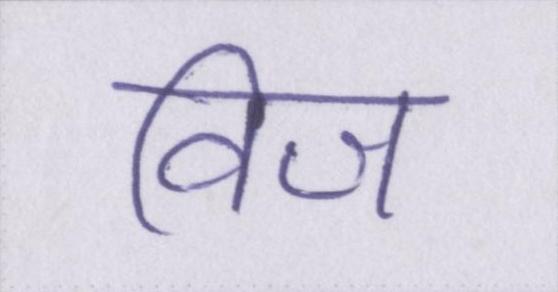 विज